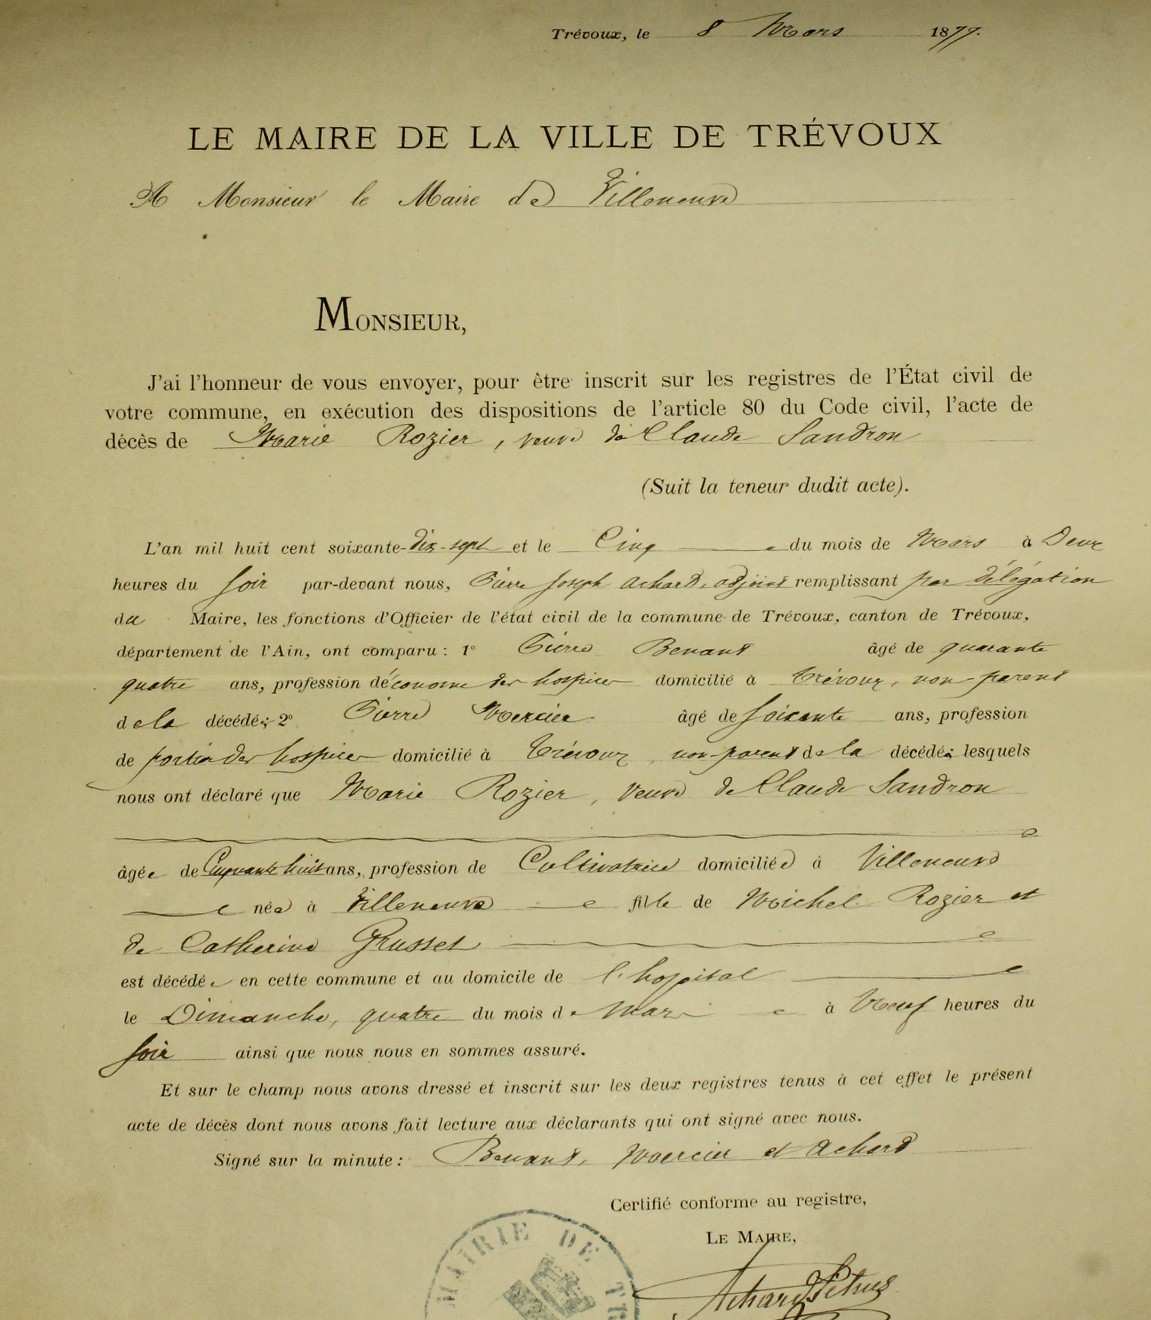 Trévoux, le 8 Mars 1877.
LE MAIRE DE LA VILLE DE TRÉVOUX
A Monsieur le Maire de Villeneuve
MONSIEUR,
J'ai l'honneur de vous envoyer, pour être inscrit sur les registres de l'État civil de
votre commune, en exécution des dispositions de l'article 80 du Code civil, l'acte de
décès de Marie Rozier, veuve de Claude Sandron
(Suit la teneur dudit acte).
L'an mil huit cent soixante-dix-sept et le Cinq du mois de Mars à Deux
heures du soir par-devant nous, Pierre Joseph Achard, adjoint remplissant par délégation
du Maire, les fonctions d'Officier de l'état civil de la commune de Trévoux, canton de Trévoux,
département de l'Ain, ont comparu : 1° Pierre Benant âgé de quarante
quatre ans, profession d'économe des hospices domicilié à Trévoux, non-parent
de la décédée; 2° Pierre Mercier âgé de soixante ans, profession
de portier des hospices domicilié à Trévoux, non-parent de la décédée lesquels
nous ont déclaré que Marie Rozier, veuve de Claude Sandron
âgée de Cinquante huit ans, profession de Cultivatrice domiciliée à Villeneuve
née à Villeneuve fille de Michel Rozier et
de Catherine Grusset
est décédée en cette commune et au domicile de l'hopital
le Dimanche, quatre du mois de Mars à Neuf heures du
soir ainsi que nous nous en sommes assuré.
Et sur le champ nous avons dressé et inscrit sur les deux registres tenus à cet effet le présent
acte de décès dont nous avons fait lecture aux déclarants qui ont signé avec nous.
Signé sur la minute : Benant, Mercier et Achard
Certifié conforme au registre,
LE MAIRE,
MAIRIE DE TR